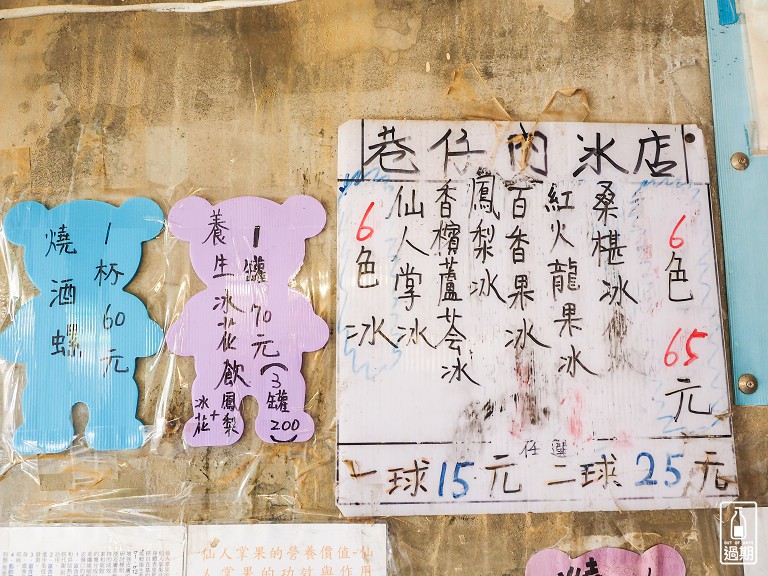 巷仔內冰店
6色 65元
桑椹冰
紅火龍果冰
百香果冰
鳳梨冰
香檳蘆荟冰
仙人掌冰
6色冰
任選
一球15元 二球25元
1罐70元(3罐200)
養生冰花飲
鳳梨+冰花
1杯60元
燒酒螺
仙人掌果的營養價值 仙
人掌果的功效與作用
OUT OF DATE
過期